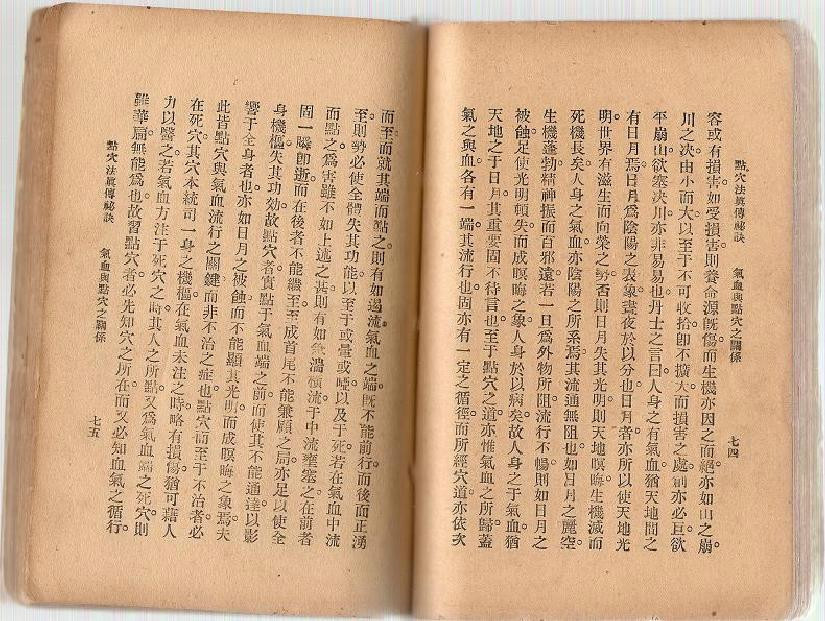 點穴法眞傳秘訣　氣血與點穴之關係　七四
容或有損害。如受損害。則養命源旣傷。而生機亦因之而絕。亦如山之崩。
川之決。由小而大。以至于不可收拾。卽不擴大。而損害之處。創亦必巨。欲
平崩山。欲塞決川。亦非易易也。丹士之言曰。人身之有氣血。猶天地間之
有日月焉。日月爲陰陽之表象。晝夜於以分也。日月者。亦所以使天地光
明。世界有滋生而向榮之勢。否則日月失其光明。則天地暝晦。生機滅而
死機長矣。人身之氣血。亦陰陽之所系焉。其流通無阻也。如日月之麗空。
生機蓬勃。精神振而百邪遠。若一旦爲外物所阻。流行不暢。則如日月之
被蝕。足使光明頓失。而成暝晦之象。人身於以病矣。故人身之于氣血。猶
天地之于日月。其重要固不待言也。至于點穴之道。亦惟氣血之所歸。蓋
氣之與血。各有一端。其流行也。固亦有一定之循徑。而所經穴道。亦依次
而至。而就其端而點之。則有如遏流。氣血之端。旣不能前行。而後而正湧
至。則勢必使全體失其功能。以至于或暈或啞。以及于死。若在氣血中流
而點之。爲害雖不如上述之甚。則有如 湍傾流。于中流壅塞之。在前者
固一瞬卽逝。而在後者不能繼至。至成首尾不能兼顧之局。亦足以使全
身機樞。失其功效。故點穴者。實點于氣血端之前。而使其不能通達。以影
響于全身者也。亦如日月之被蝕。而不能顯其光明。而成暝晦之象焉。夫
此皆點穴與氣血流行之關鍵。而非不治之症也。點穴而至于不治者。必
在死穴。其穴本統司一身之機樞。在氣血未注之時。略有損傷。猶可藉人
力以醫之。若氣血方注于死穴之時。其人之所點。又爲氣血端之死穴。則
雖華扁無能爲也。故習點穴者。必先知穴之所在。而又必知血氣之循行。
點穴法眞傳秘訣　氣血與點穴之關係　七五